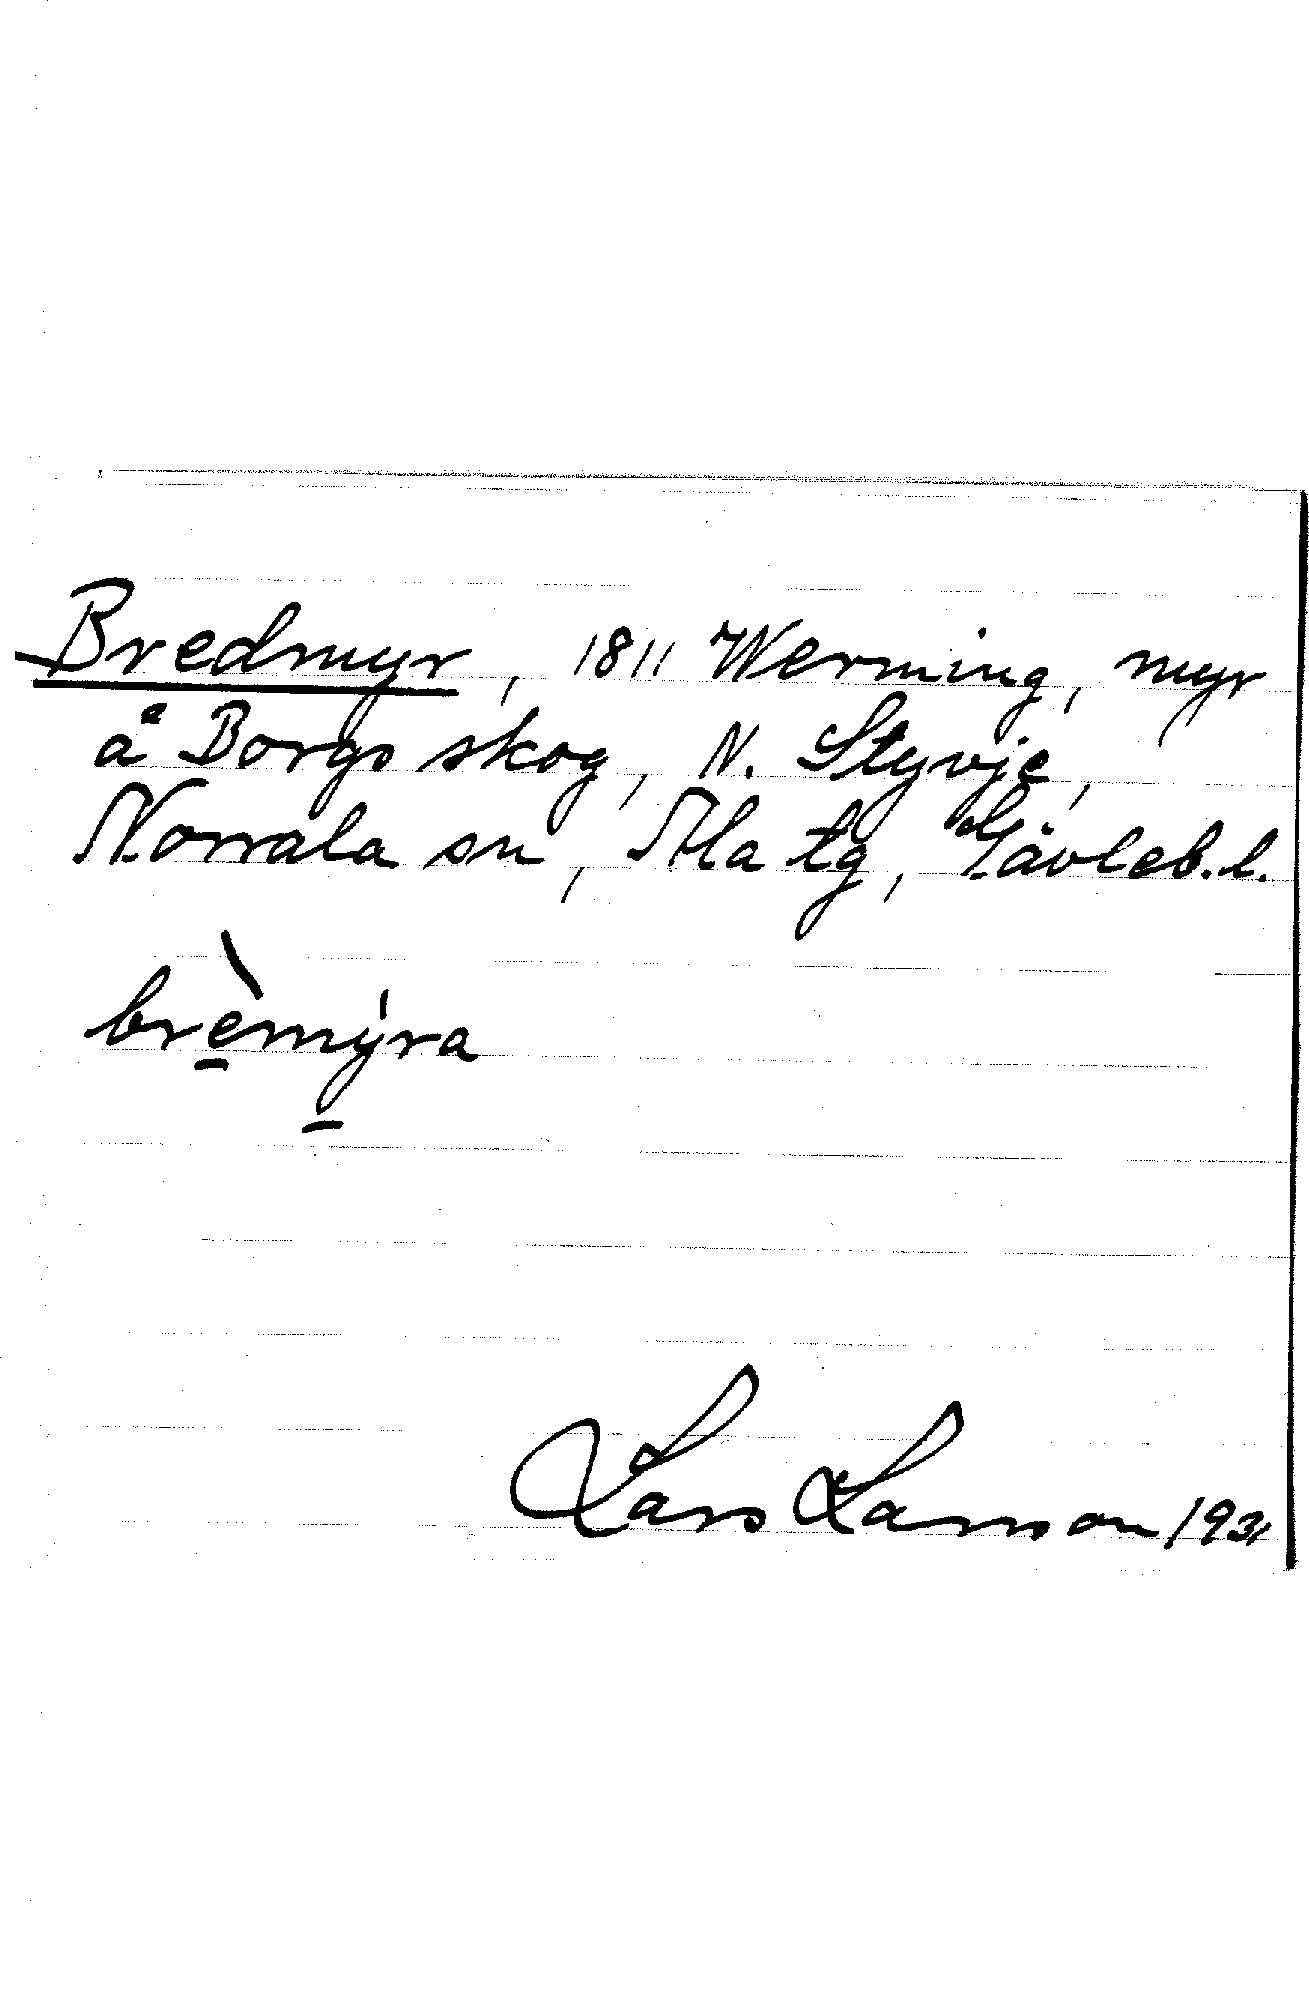 Bredmyr, 1811 Werming, myr
å Borgs skog, N. Styvje,
Norrala sn, Ala tg, Gävleb. l.
brèmýra
Lars Larsson 1931